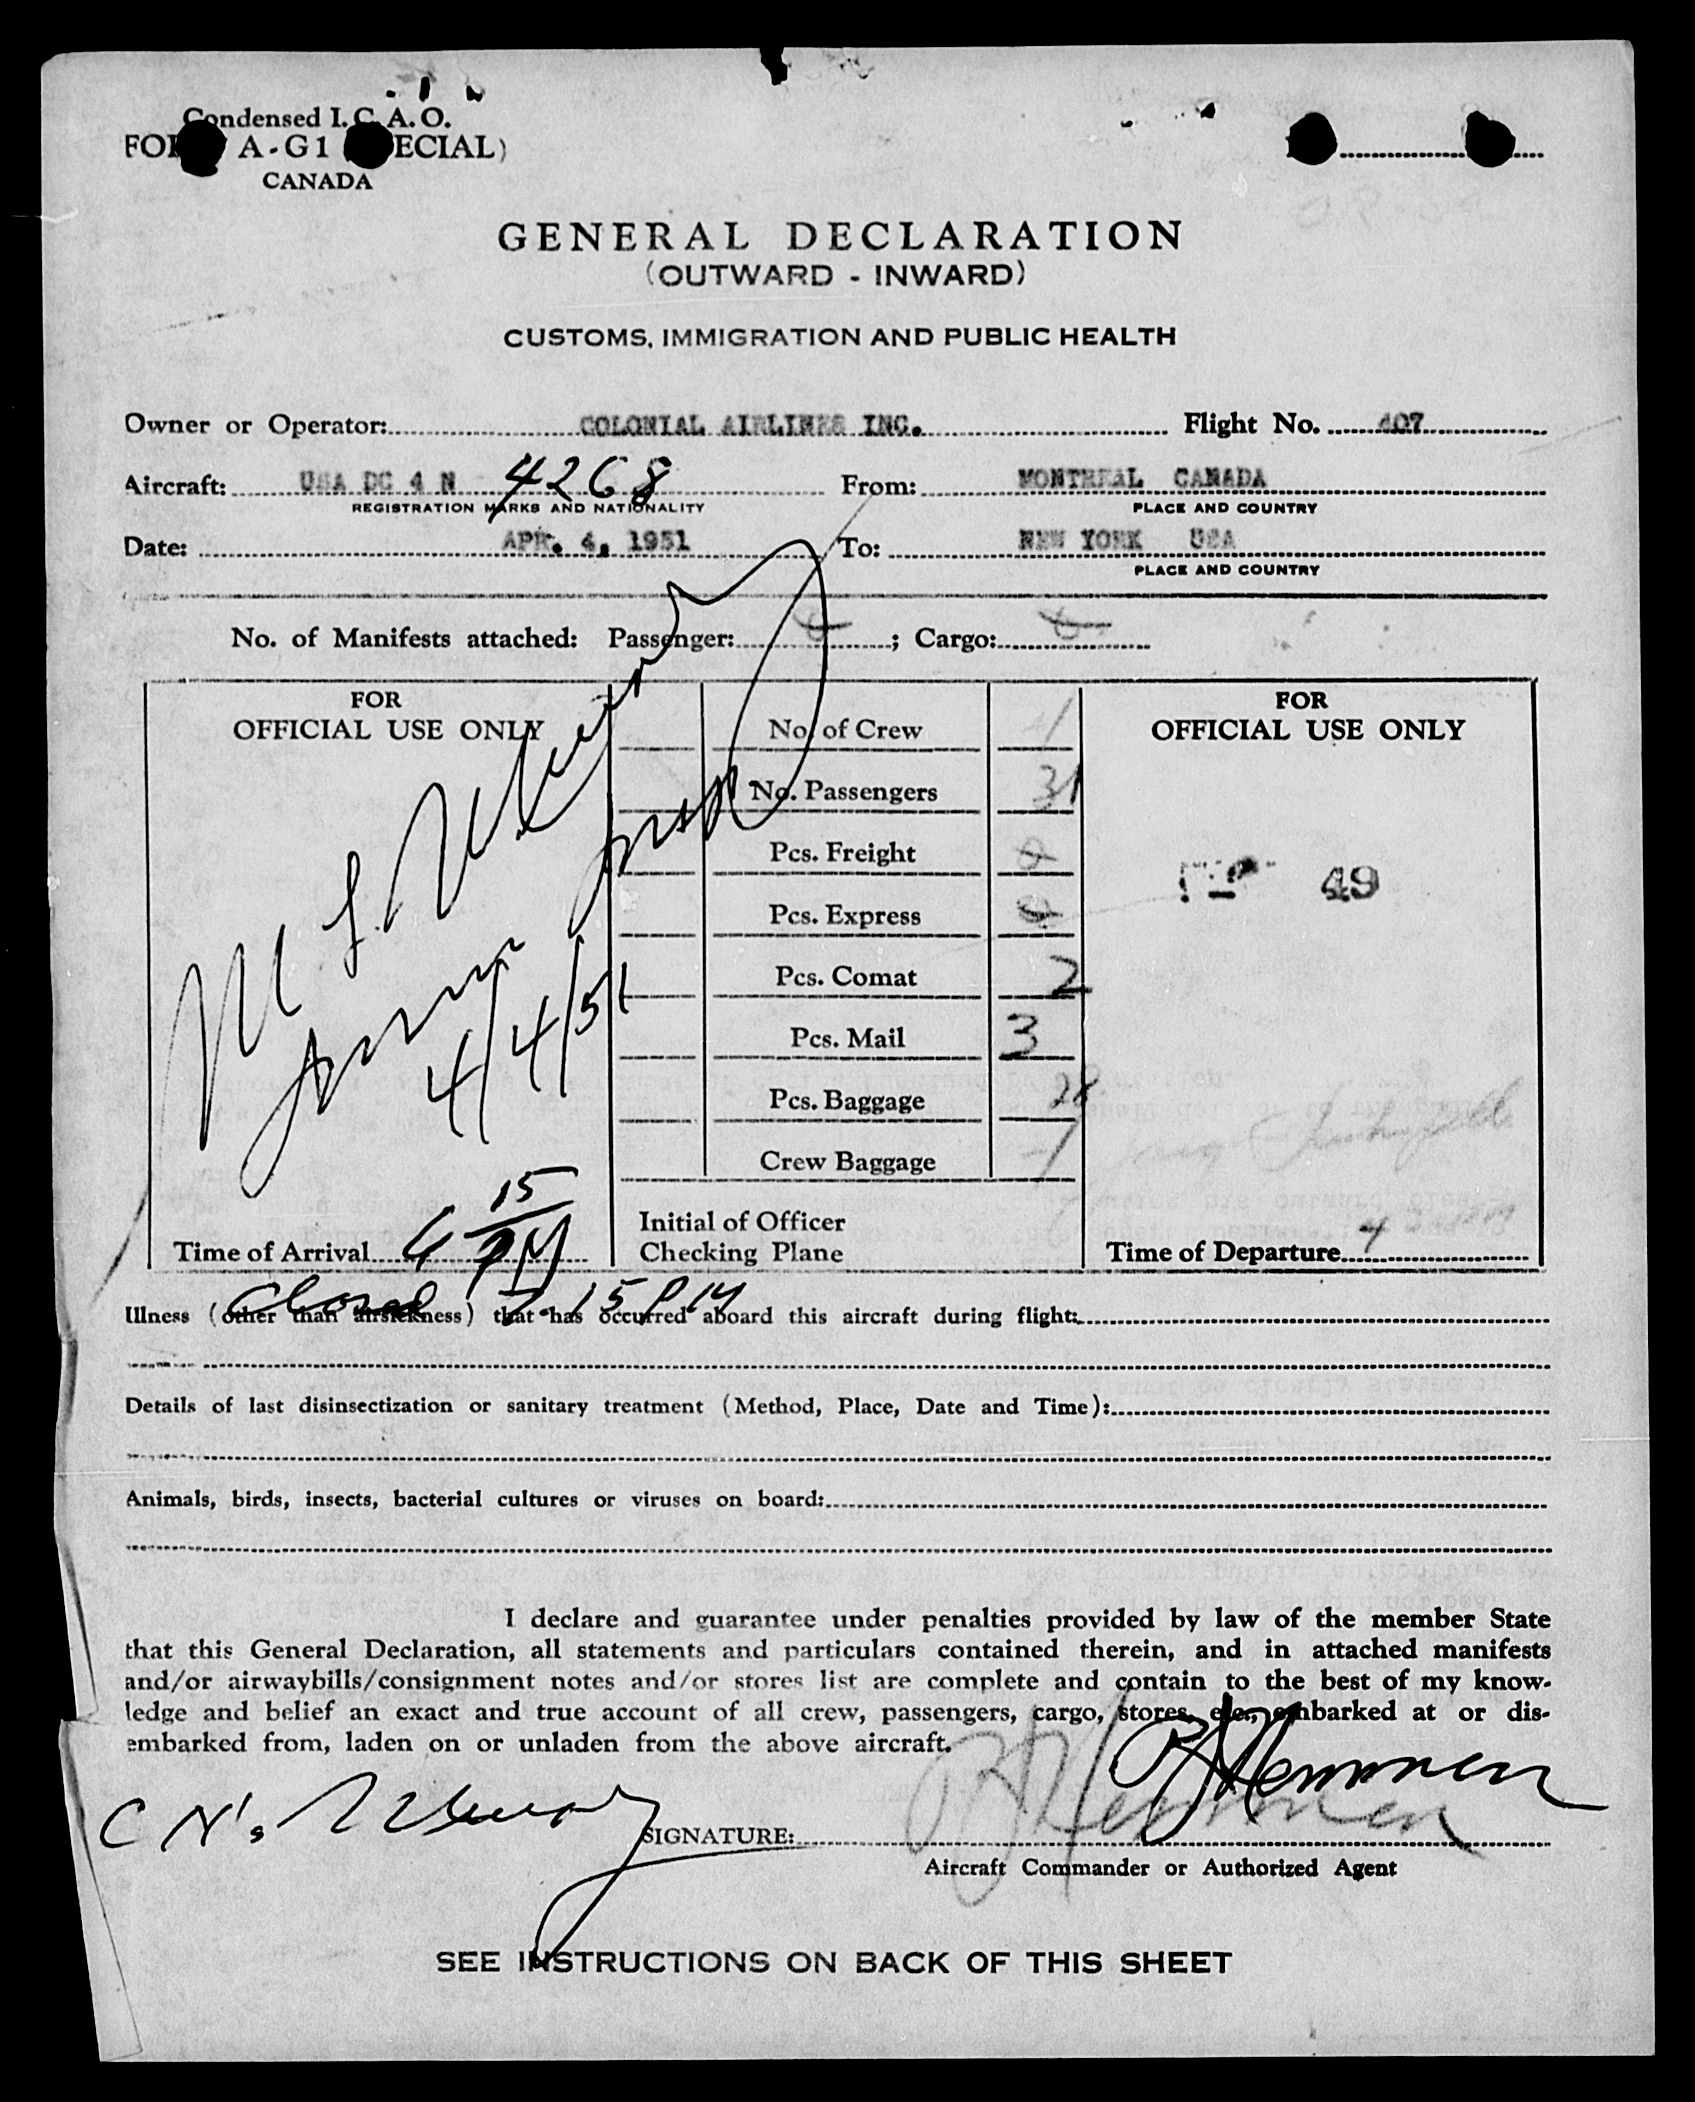 Condensed I.C.A.O.
A-G1 ECIAL)
CANADA
GENERAL DECLARATION
(OUTWARD - INWARD)
CUSTOMS, IMMIGRATION AND PUBLIC HEALTH
Owner or Operator: COLONIAL AIRLINES INC. Flight No. 407
Aircraft: USA DC 4 N 4268 From: MONTREAL CANADA
REGISTRATION MARKS AND NATIONALITY PLACE AND COUNTRY
Date: APR. 4, 1951 To: NEW YORK USA
PLACE AND COUNTRY
No. of Manifests attached: Passenger: ; Cargo:
FOR
OFFICIAL USE ONLY
4/4/51
Time of Arrival 6 15 PM
No. of Crew
No. Passengers 31
Pcs. Freight
Pcs. Express
Pcs. Comat 2
Pcs. Mail 3
Pcs. Baggage 28
Crew Baggage
Initial of Officer
Checking Plane
FOR
OFFICIAL USE ONLY
49
Time of Departure
Closed 7.15 PM
Illness (other than airsickness) that has occurred aboard this aircraft during flight:
Details of last disinsectization or sanitary treatment (Method, Place, Date and Time):
Animals, birds, insects, bacterial cultures or viruses on board:
I declare and guarantee under penalties provided by law of the member State
that this General Declaration, all statements and particulars contained therein, and in attached manifests
and/or airwaybills/consignment notes and/or stores list are complete and contain to the best of my know-
ledge and belief an exact and true account of all crew, passengers, cargo, stores, etc., embarked at or dis-
embarked from, laden on or unladen from the above aircraft.
SIGNATURE:
Aircraft Commander or Authorized Agent
SEE INSTRUCTIONS ON BACK OF THIS SHEET